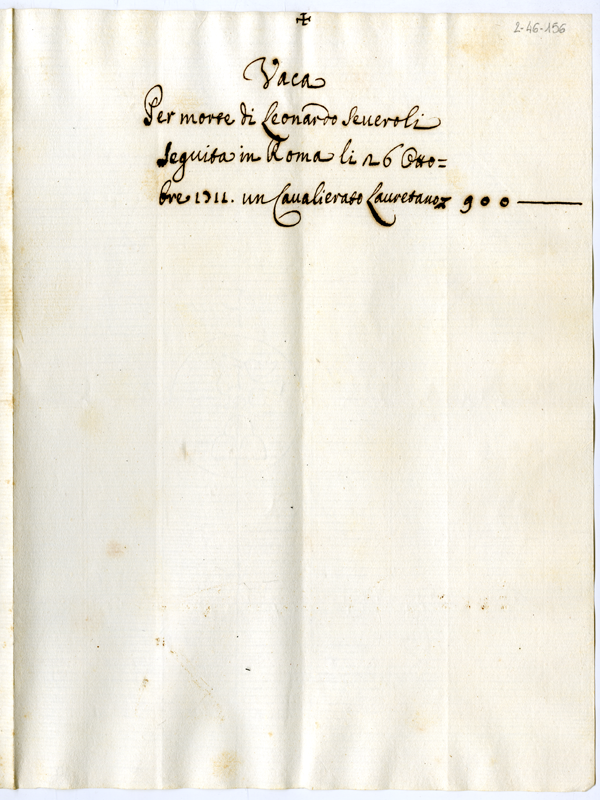 ✠
2-46-156
Vaca
Per morte di Leonardo Severoli
seguita in Roma li 26 Otto=
bre 1711. un Cavalierato Lauretano 900 —